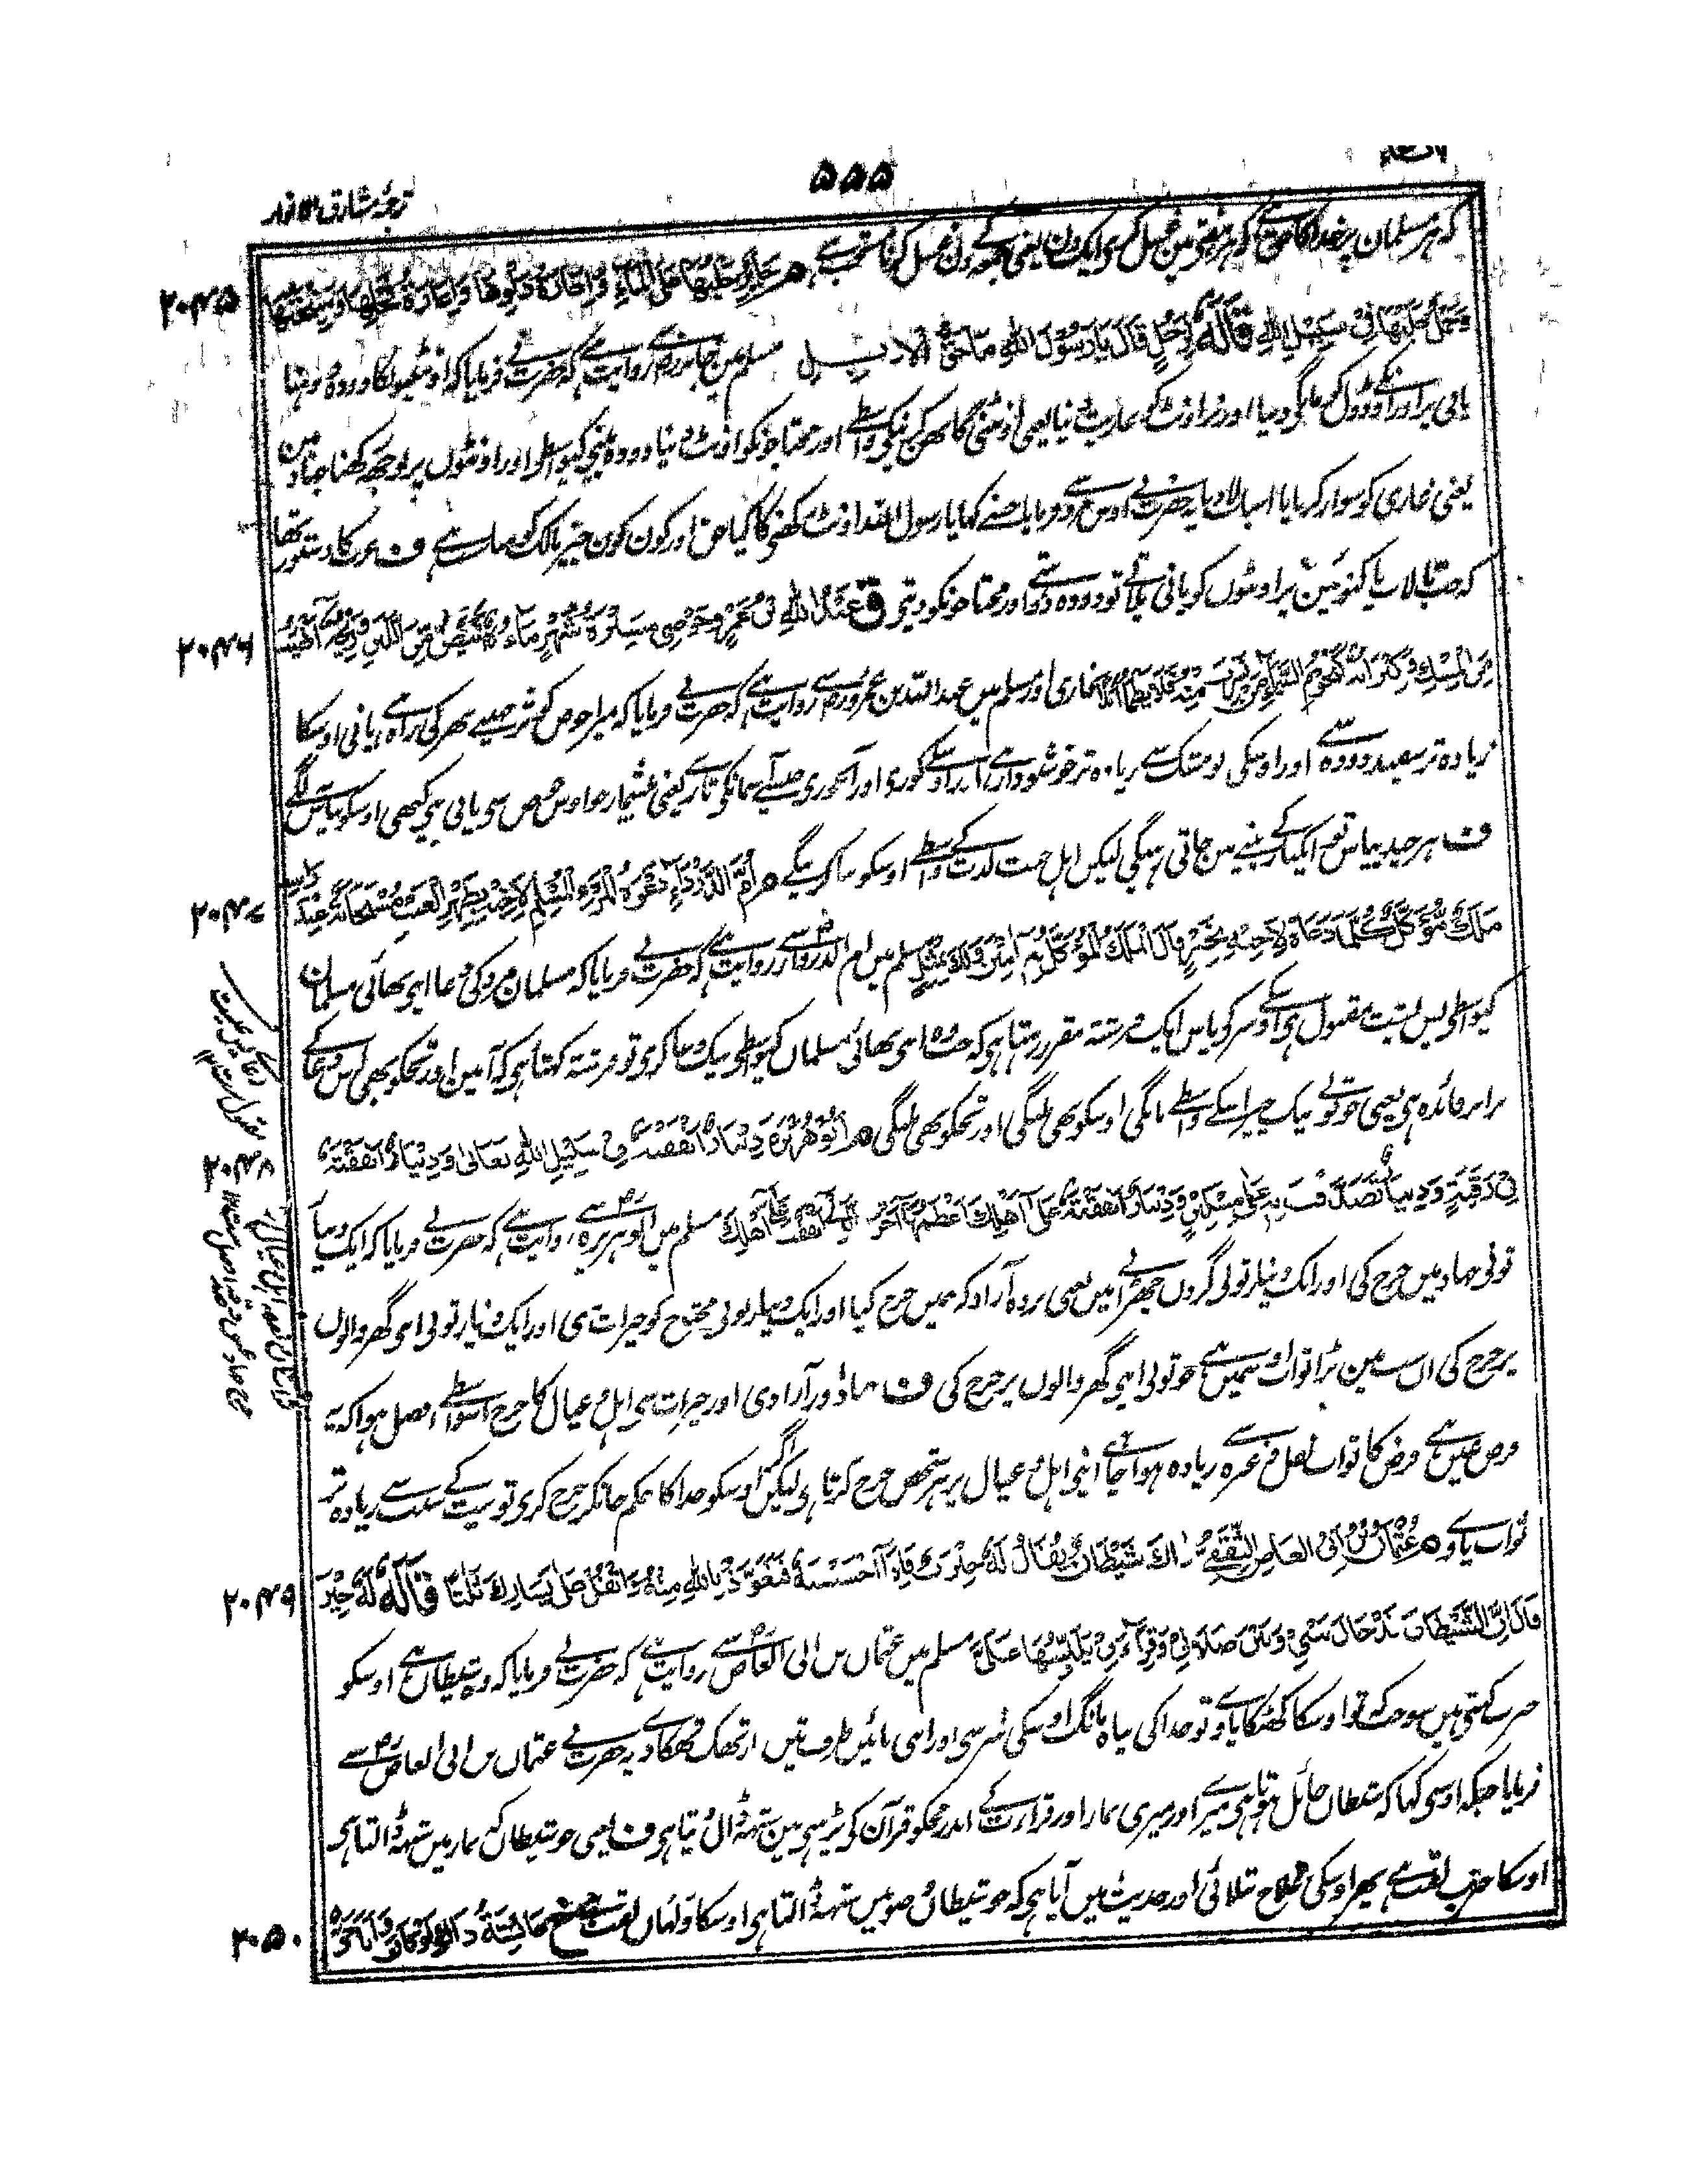 ۵۵۵
ترجمۂ مشارق الانوار
کہ ہر مسلمان پر خدا کا حق ہے کہ ہر ہفتے میں غسل کری ایک دن یعنی جمعہ کے دن غسل کرنا مستحب ہے م جابر حَلْبُهَا عَلَی الْمَاءِ وَاِعَارَةُ دَلْوِهَا وَاِعَارَةُ فَحْلِهَا وَمَنِيْحَتُهَا
۲۰۴۵
وَحَمْلٌ عَلَيْهَا فِیْ سَبِيْلِ اللهِ قَالَهٗ لِرَجُلٍ قَالَ يَا رَسُوْلَ اللهِ مَا حَقُّ الْاِبِلِ مسلم میں جابر رض سے روایت ہے کہ حضرت نے فرمایا کہ اونٹنیوں کا دودھ دوہنا
پانی پر اور اونکے ڈول کو مانگی دینا اور نر اونٹ کو عاریت دینا یعنی اونٹنی گابھن کرنیکے واسطے اور محتاجونکو اونٹ دینا دودھ پینے کیواسطے اور اونٹوں پر بوجھ رکھنا جہاد میں
یعنی غازی کو سوار کرنا یا اسباب لادنا یہ حضرت نے اوس مرد سے فرمایا جسنے کہا یا رسول اللہ اونٹ رکھنے کا کیا حق اور کون کون چیز مالک کو ہے ف عرب کا دستور تھا
کہ جب تالاب یا کنوئیں پر اونٹوں کو پانی پلاتے تو دودھ دوہتے اور محتاجونکو دیتے ق عَبْدُ اللهِ بْنُ عَمْرٍو حَوْضِیْ مَسِيْرَةُ شَهْرٍ مَاءُهٗ اَبْيَضُ مِنَ اللَّبَنِ وَرِيْحُهٗ اَطْيَبُ
۲۰۴۶
مِنَ الْمِسْكِ وَكِيْزَانُهٗ كَنُجُوْمِ السَّمَاءِ مَنْ شَرِبَ مِنْهُ فَلَا يَظْمَأُ اَبَدًا بخاری اور مسلم میں عبد اللہ بن عمرو رض سے روایت ہے کہ حضرت نے فرمایا کہ میرا حوض کوثر مہینے بھر کی راہ ہے پانی اوسکا
زیادہ تر سفید دودھ سے اور اوسکی بو مشک سے زیادہ تر خوشبودار ہے اور اوسکے کوزی اور آبخوری جیسے آسمانکے تارے یعنی بیشمار جو اوس حوض سی پانی پیے کبھی اوسکو پیاس نہ لگے
ف ہر چند پیاس تو ایکبار کے پینے میں جاتی رہیگی لیکن اہل جنت لذت کے واسطے اوسکو پیا کرینگے م اُمُّ الدَّرْدَاءِ دَعْوَةُ الْمَرْءِ الْمُسْلِمِ لِاَخِيْهِ بِظَهْرِ الْغَيْبِ مُسْتَجَابَةٌ عِنْدَ رَأْسِهٖ
۲۰۴۷
مَلَكٌ مُوَكَّلٌ كُلَّمَا دَعَا لِاَخِيْهِ بِخَيْرٍ قَالَ الْمَلَكُ الْمُوَكَّلُ بِهٖ اٰمِيْنَ وَلَكَ بِمِثْلٍ مسلم میں ام الدرداء رض سے روایت ہے کہ حضرت نے فرمایا کہ مسلمان مرد کی دعا اپنی بھائی مسلمان
کیواسطے پس پشت مقبول ہی اوسکے سر کے پاس ایک فرشتہ مقرر رہتا ہی کہ جب اپنی بھائی مسلمان کیواسطے نیک دعا کری تو فرشتہ کہتا ہی کہ آمین اور تجکو بھی اس دعا کے
برابر فائدہ ہی یعنی جو تونے نیک چیز اسکے واسطے مانگی اوسکو بھی ملیگی اور تجکو بھی ملیگی م اَبُوْ هُرَيْرَةَ دِيْنَارٌ اَنْفَقْتَهٗ فِیْ سَبِيْلِ اللهِ تَعَالٰی وَدِيْنَارٌ اَنْفَقْتَهٗ
۲۰۴۸
فِیْ رَقَبَةٍ وَدِيْنَارٌ تَصَدَّقْتَ بِهٖ عَلٰی مِسْكِيْنٍ وَدِيْنَارٌ اَنْفَقْتَهٗ عَلٰی اَهْلِكَ اَعْظَمُهَا اَجْرًا الَّذِیْ اَنْفَقْتَهٗ عَلٰی اَهْلِكَ مسلم میں ابو ہریرہ رض سے روایت ہے کہ حضرت نے فرمایا کہ ایک دینار
تونی جہاد میں خرچ کی اور ایک دینار تونی گردن چھڑانے میں یعنی بردہ آزاد کرنیمیں خرچ کیا اور ایک دینار تونی محتاج کو خیرات دی اور ایک دینار تونی اپنی گھر والوں
پر خرچ کی ان سب میں بڑا ثواب اسمیں ہے جو تونی اپنی گھر والوں پر خرچ کی ف جہاد اور آزادی اور خیرات سی اہل و عیال کا خرچ اسواسطے افضل ہوا کہ یہ
فرض عین ہے فرض کا ثواب نفل وغیرہ سے زیادہ ہوا چاہے اپنی اہل و عیال پر ہر شخص خرچ کرتا ہی لیکن اگر اوسکو خدا کا حکم جانکر خرچ کری تو نیت کے سبب سے زیادہ تر
ثواب پاوے م عُثْمَانُ بْنُ اَبِی الْعَاصِ الثَّقَفِیُّ ذَاكَ شَيْطَانٌ يُقَالُ لَهٗ خِنْزَبٌ فَاِذَا اَحْسَسْتَهٗ فَتَعَوَّذْ بِاللهِ مِنْهُ وَاتْفُلْ عَلٰی يَسَارِكَ ثَلٰثًا قَالَهٗ لَهٗ حِيْنَ
۲۰۴۹
قَالَ اِنَّ الشَّيْطَانَ قَدْ حَالَ بَيْنِیْ وَبَيْنَ صَلٰوتِیْ وَقِرَاءَتِیْ يُلَبِّسُهَا عَلَیَّ مسلم میں عثمان بن ابی العاص رض سے روایت ہے کہ حضرت نے فرمایا کہ وہ شیطان ہے اوسکو
خنزب کہتی ہیں سو جب کہ تو اوسکا کھٹکا پاوے تو خدا کی پناہ مانگ اوسکی شر سی اور اپنی بائیں طرف تین بار تھک تھکا دے یہ حضرت نے عثمان بن ابی العاص رض سے
فرمایا جبکہ اوسی کہا کہ شیطان حائل ہوتا ہی میرے اور میری نماز اور قراءت کے اندر مجکو قرآن کی پڑہنی میں شبہہ ڈال دیتا ہی ف یعنی جو شیطان کہ نماز میں شبہہ ڈالتا ہی
اوسکا خنزب لقب ہے پھر اوسکی علاج بتلائی اور حدیث میں آیا ہی کہ جو شیطان وضو میں شبہہ ڈالتا ہی اوسکا ولہان لقب ہے خ عَائِشَةُ ذَاكِ لَوْ كَانَ وَاَنَا حَیٌّ
۲۰۵۰